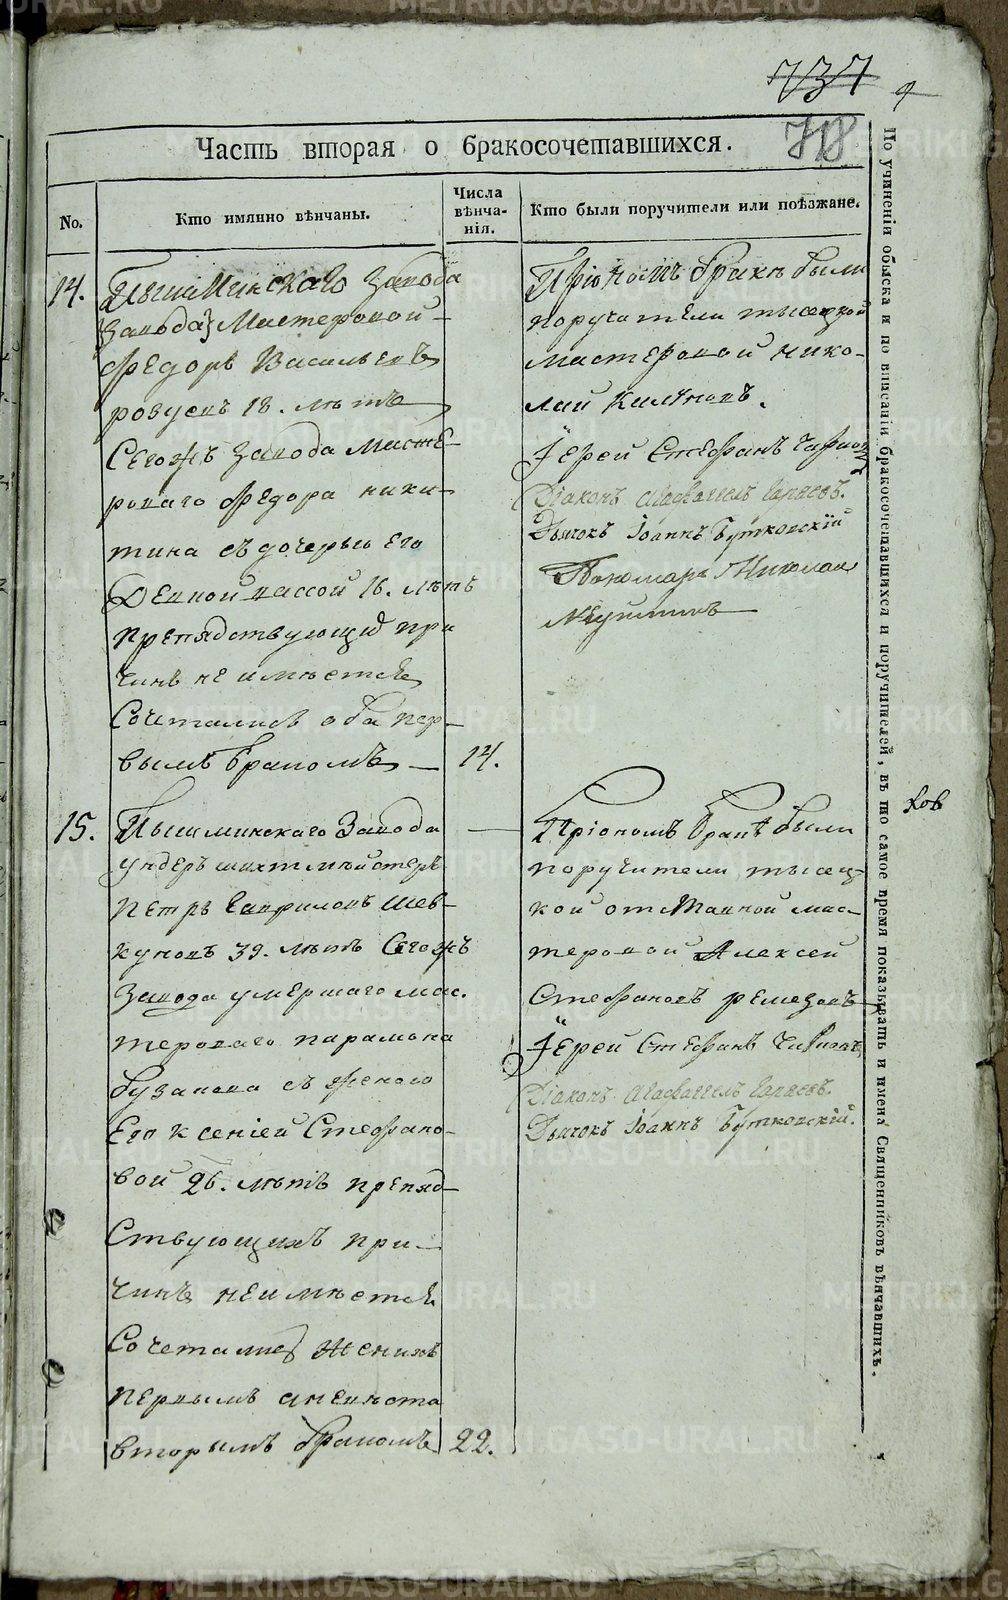 737
9
718
Часть вторая о бракосочетавшихся.
No.
Кто имянно вѣнчаны.
Числа вѣнча-нія.
Кто были поручители или поѣзжане.
14.
Пышминскаго завода
{завода} Мастеровой
Ѳедоръ Васильевъ
18. лѣтъ
Сегожъ завода масте-
роваго Ѳедора Ники-
тина съ дочерью его
девкой Вассой 16. лѣтъ
препядствующи при
чинъ не имѣется
Сочетались оба пер-
вымъ бракомъ — 14.
При ономъ бракѣ были
поручители тысяцкой
мастеровой Нико-
лай
Іерей Стефанъ
Діаконъ
Дьячокъ Іоаннъ Бутковскій
Пономарь Николай
15.
Пышминскаго завода
ундеръ шихтмейстеръ
Петръ Гавриловъ Шев-
куновъ 39. лѣтъ Сегожъ
завода умершаго мас.
тероваго Парамона
Бузанова съ женою
Его Ксеніей Стефано-
вой 26. лѣтъ препяд-
ствующихъ при-
чинъ неимѣется
Сочетались женихъ
первымъ а невѣста
вторымъ бракомъ 22.
При ономъ бракѣ были
поручители тысяц-
кой отставной мас-
теровой Алексей
Стефановъ Ремезовъ
Іерей Стефанъ
Діаконъ
Дьячокъ Іоаннъ Бутковскій.
ков
По учиненіи обыска и по вписаніи бракосочетавшихся и поручителей, въ то самое время показывать и имена Священниковъ вѣнчавшихъ.
METRIKI.GASO-URAL.RU